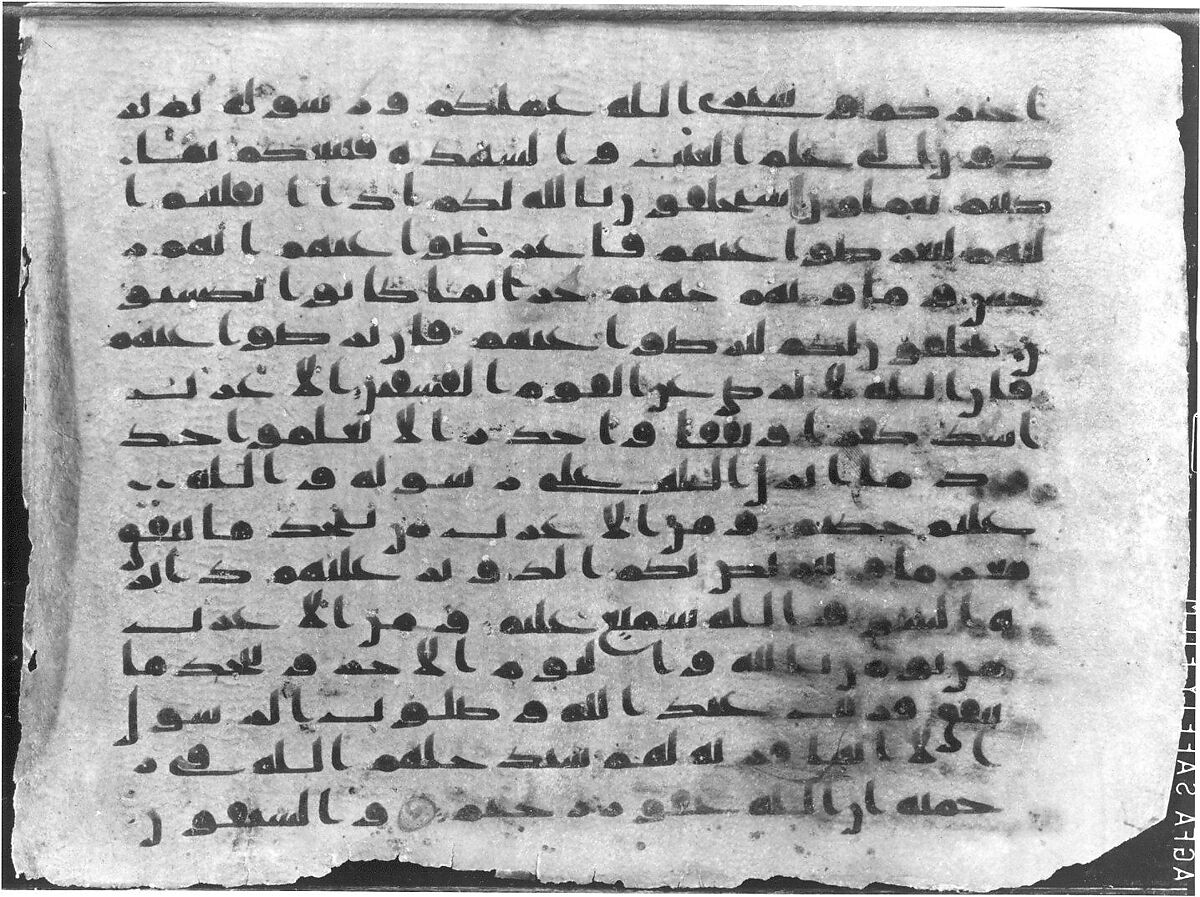 اخباركم وسيرى الله عملكم ورسوله ثم تر
دون الى علم الغيب والشهده فينبيكم بما
كنتم تعملون سيحلفون بالله لكم اذا انقلبتم ا
ليهم لتعرضوا عنهم فاعرضوا عنهم انهم ر
جس وماويهم جهنم جزا بما كانوا يكسبو
ن يحلفون لكم لترضوا عنهم فان ترضوا عنهم
فان الله لا يرضى عن القوم الفسقين الاعراب
اشد كفرا ونفقا واجدر الا يعلموا حدو
د ما انزل الله على رسوله والله
عليم حكيم ومن الاعراب من يتخذ ما ينفق
مغرما ويتربص بكم الدوير عليهم داير
ه السو والله سميع عليم ومن الاعراب
من يومن بالله واليوم الاخر ويتخذ ما
ينفق قربت عند الله وصلوت الرسول
الا انها قربه لهم سيدخلهم الله في ر
حمته ان الله غفور رحيم والسبقون
AGFA SAFETY FILM